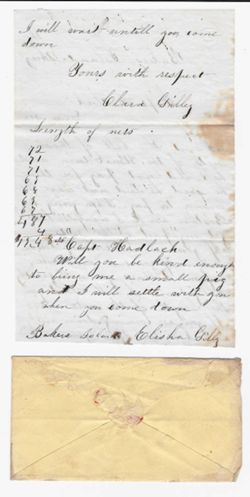 I will wait untill you come
down
Yours with respect
Clara Gilley
Length of nets
72
71
71
Capt Hadlock
Will you be kind enough
to bring me a small pig
and I will settle with you
when you come down
Bakers Island Elisha Gilley